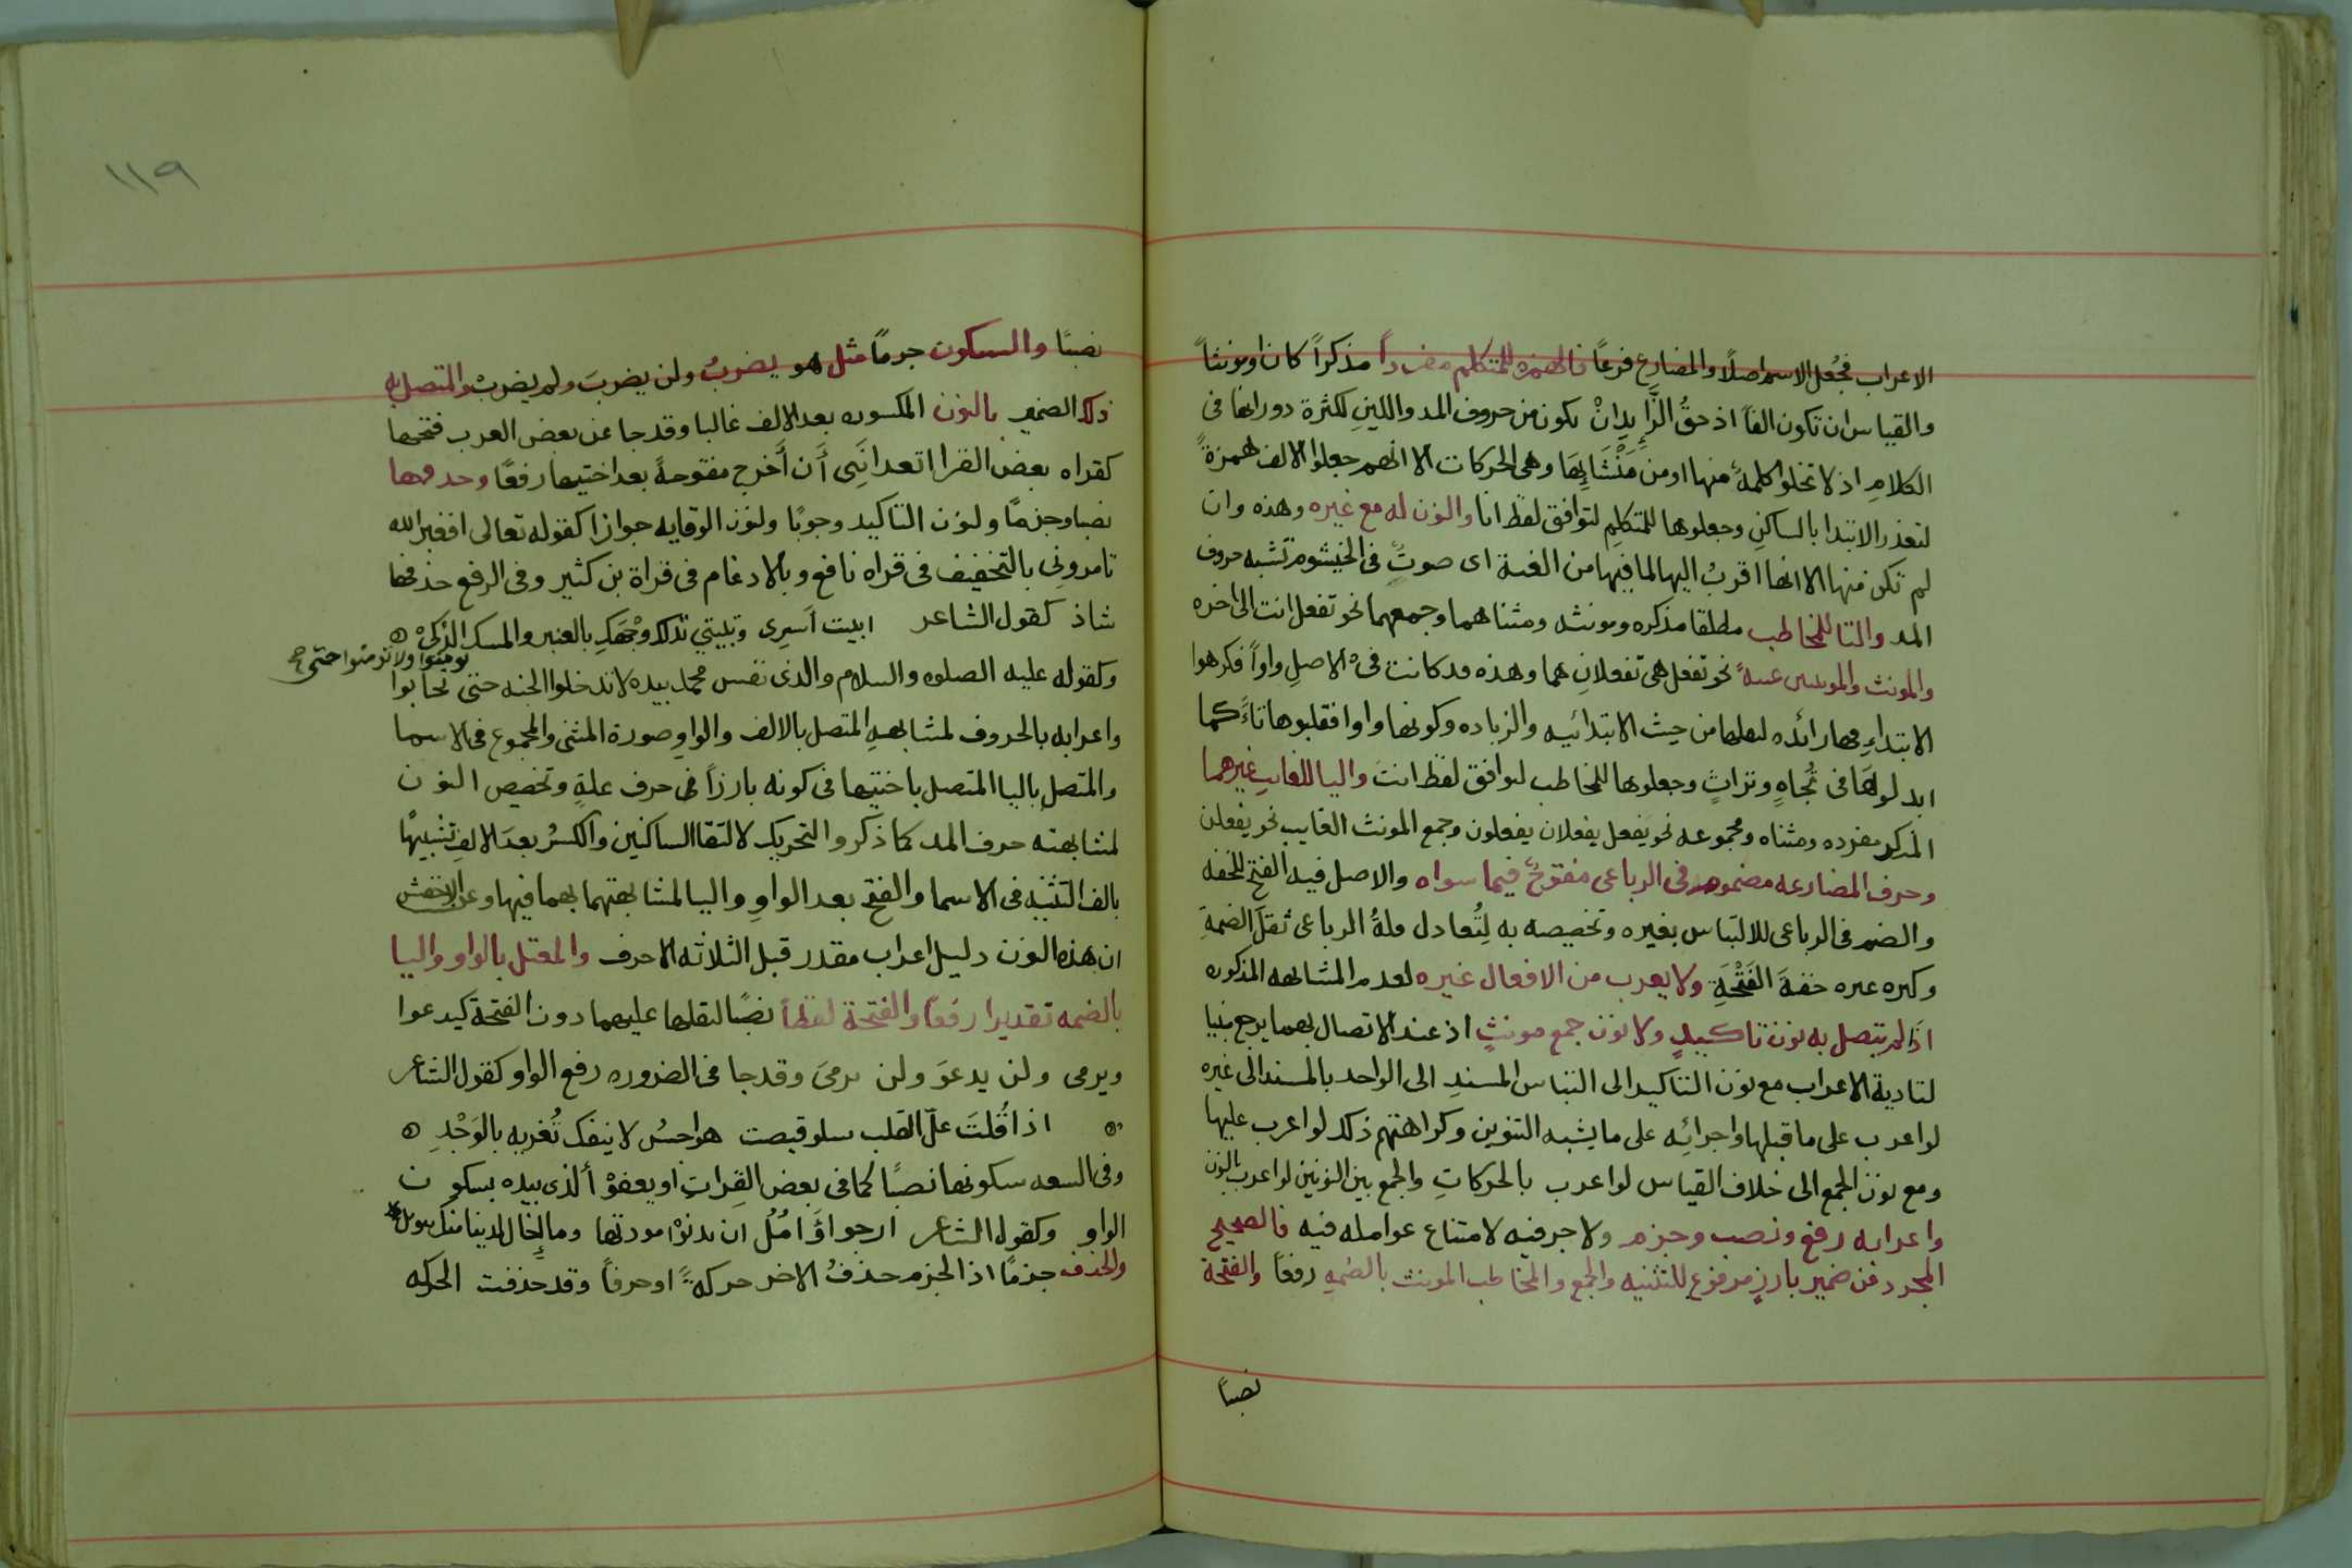 الاعراب فجُعل الاسم اصلًا والمضارع فرعًا فالهمزه للمتكلم مفرداً مذكراً كان او مونثاً
والقياس ان تكون الفاً اذ حقُ الزَّايِد انْ يكون من حروف المد واللينِ لكثرة دورانها فى
الكلامِ اذ لا تخلو كلمةٌ منها او من مَنْشَايِهَا وهى الحركات الا انهم جعلوا الالف همزةً
لتعذر الابتدا بالساكنِ وجعلوها للمتكلمِ لتوافق لفظ انا والنون له مع غيره وهذه وان
لم تكن منها الا انها اقربُ اليها لما فيها من الغنة اى صوتٌ فى الخيشوم تشبه حروف
المد والتا للمخاطب مطلقا مذكره ومونثه ومثناهما وجمعهما نحو تفعل انت الى اخره
والمونث والمونثين غيبةً نحو تفعل هى تفعلانِ هما وهذه قد كانت فى الاصلِ واواً فكرهوا
الابتداءِ بها زائده لثقلها من حيث الابتدائيه والزياده وكونها واوا فقلبوها تاءً كما
ابدلوهَا فى تُجاهٍ وتراثٍ وجعلوها للمخاطب لتوافق لفظ انتَ واليا للغايبِ غيرهما
المذكر مفرده ومثناه ومجموعه نحو يفعل يفعلان يفعلون وجمع المونث الغايب نحو يفعلن
وحرف المضارعه مضموم فى الرباعى مفتوحٌ فيما سواه والاصل فيه الفتح للخفه
والضم فى الرباعى للالتباس بغيره وتخصيصه به لِتُعادل قلةُ الرباعى ثقلَ الضمةِ
وكثره غيره خفةَ الفَتْحَةِ ولا يعرب من الافعال غيره لعدم المشابهه المذكوره
اذَا لم يتصل به نون تاكيدٍ ولا نون جمع مونثٍ اذ عند الاتصال بهما يرجع مبنيا
لتادية الاعراب مع نون التاكيد الى التباس المسندِ الى الواحد بالمسند الى غيره
لو اعرب على ما قبلها واجرائِه على ما يشبه التنوين وكراهتهم ذلك لو اعرب عليها
ومع نون الجمع الى خلاف القياس لو اعرب بالحركاتِ والجمع بين النونين لو اعرب بالنون
واعرابه رفع ونصب وجزم ولا جر فيه لامتناع عوامله فيه فالصحيح
المجرد عن ضمير بارزٍ مرفوع للتثنيه والجمع والمخاطب المونث بالضمهِ رفعًا والفتحة
نصبًا
١١٩
نصبًا والسكون جزمًا مثل هو يضربُ ولن يضربَ ولم يضربْ والمتصل به
ذلك الضمير بالنون المكسوره بعد الالف غالبا وقد جا عن بعض العرب فتحها
كقراه بعض القرا اتعدانَنِى أَن أُخرج مفتوحةً بعد اختيها رفعًا وحذفها
نصبا وجزمًا ولنون التاكيد وجوبًا ولنون الوقايه جوازًا كقوله تعالى افغير الله
تامرونِى بالتخفيف فى قراه نافع وبالادغام فى قراة بن كثير وفى الرفع حذفها
شاذ كقول الشاعر ابيت اَسرِى وتبيتي تدلكى وَجْهَكِ بالعنبر والمسك الذكىْ
وكقوله عليه الصلوه والسلام والذى نفس محمد بيده لا تدخلوا الجنه حتى تحابوا
تومنوا ولا تومنوا حتى صح
واعرابه بالحروف لمشابهةِ المتصل بالالف والواو صورة المثنى والمجموع فى الاسما
والمتصلِ باليا المتصل باختيها فى كونه بارزاً فى حرف علةٍ وتخصيص النون
لمشابهته حرف المد كما ذكر والتحريك لالتقا الساكنين والكسرُ بعدَ الالفِ تشبيهًا
بالف التثنيه فى الاسما والفتح بعد الواوِ واليا لمشابهتهما بهما فيها وعن الاخفش
ان هذه النون دليل اعراب مقدر قبل الثلاثه الاحرف والمعتل بالواو واليا
بالضمه تقديرا رفعًا والفتحة لفظًا نصبًا لثقلها عليهما دون الفتحة كيدعوا
ويرمى ولن يدعوَ ولن يرمىَ وقد جا فى الضروره رفع الواو كقول الشاعر
اذا قُلتَ علّ القلب يسلو قيضت هواجسُ لا ينفك تُغريه بالوَجْدِ
وفى السعه سكونها نصبًا كما فى بعض القِراتِ او يعفوْ ألذى بيده بسكون
الواو وكقول الشاعر ارجو اوَآمُلُ ان تدنوْا مودتها وما إِخال لدينا منك تنويل
والحذف جزمًا اذ الجزم حذفُ الاخر حركةً او حرفاً وقد حذفت الحركه